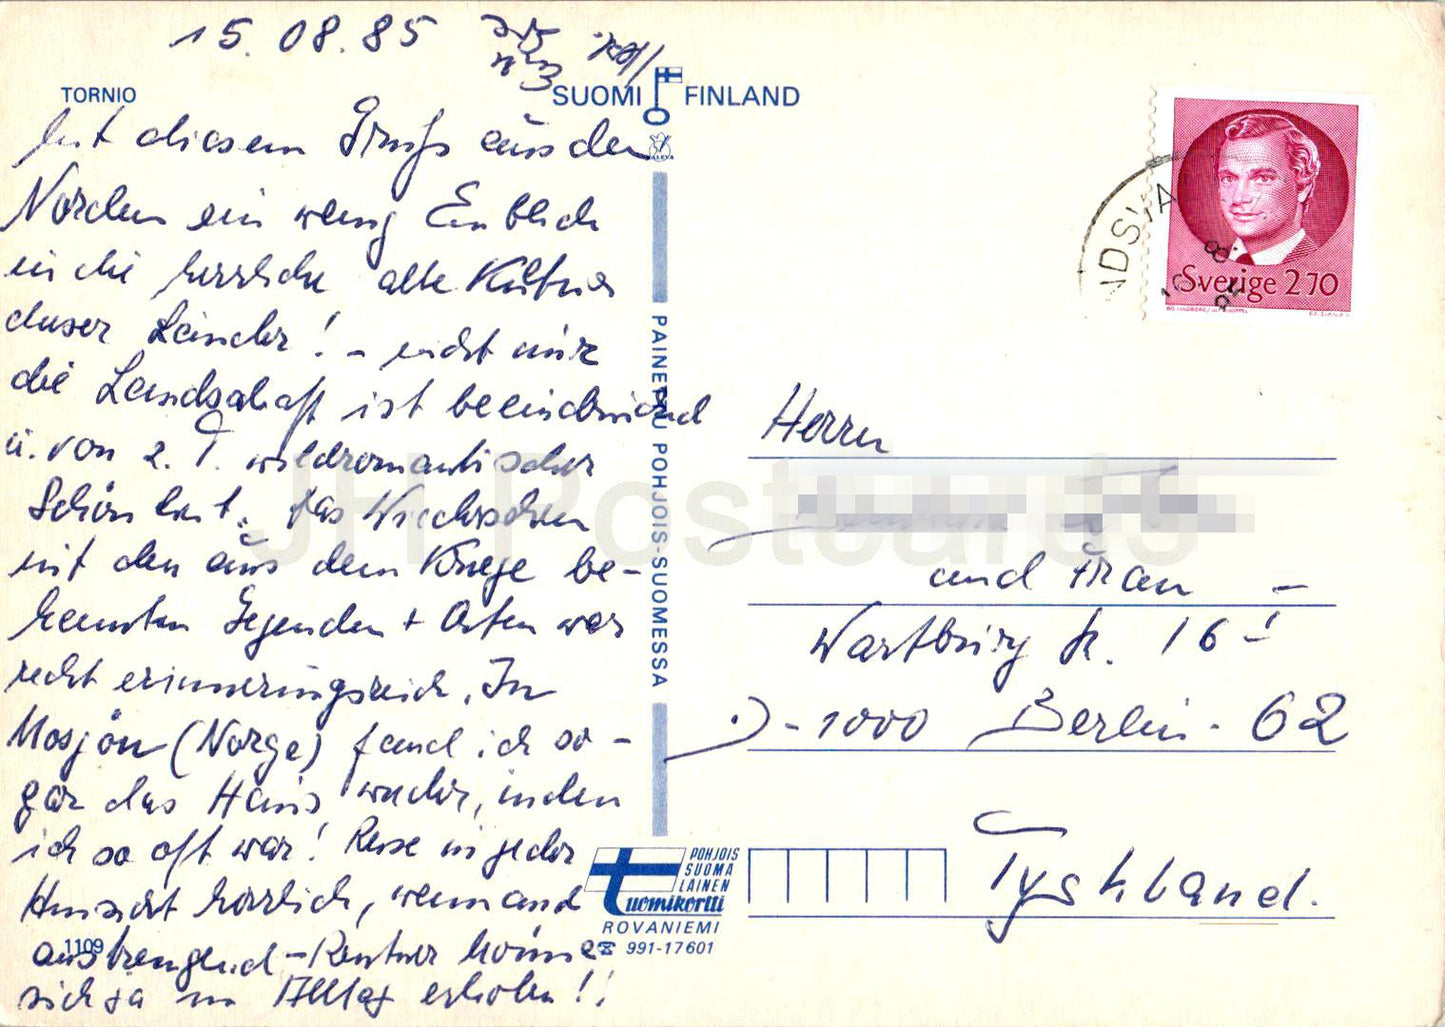 15.08.85
TORNIO
SUOMI FINLAND
mit diesem Gruß aus dem
Norden ein wenig Einblick
in die herrliche alte Kultur
dieser Länder! - nicht nur
die Landschaft ist beeindruckend
u. von z. T. wildromantischer
Schönheit. Das Wiedersehen
mit den aus dem Kriege be-
kannten Gegenden + Orten war
recht erinnerungsreich. In
Mosjön (Norge) fand ich so-
gar das Haus wieder, in dem
ich so oft war! Reise in jeder
Hinsicht herrlich, wenn auch
anstrengend - Rentner können
sich ja im Alltag erholen!!
1109
PAINETTU POHJOIS-SUOMESSA
POHJOIS
SUOMA
LAINEN
tuomikortti
ROVANIEMI
☎ 991-17601
Sverige 270
Herrn
und Frau -
Wartburg str. 16 I
D-1000 Berlin-62
Tyskland.
JH Postcards